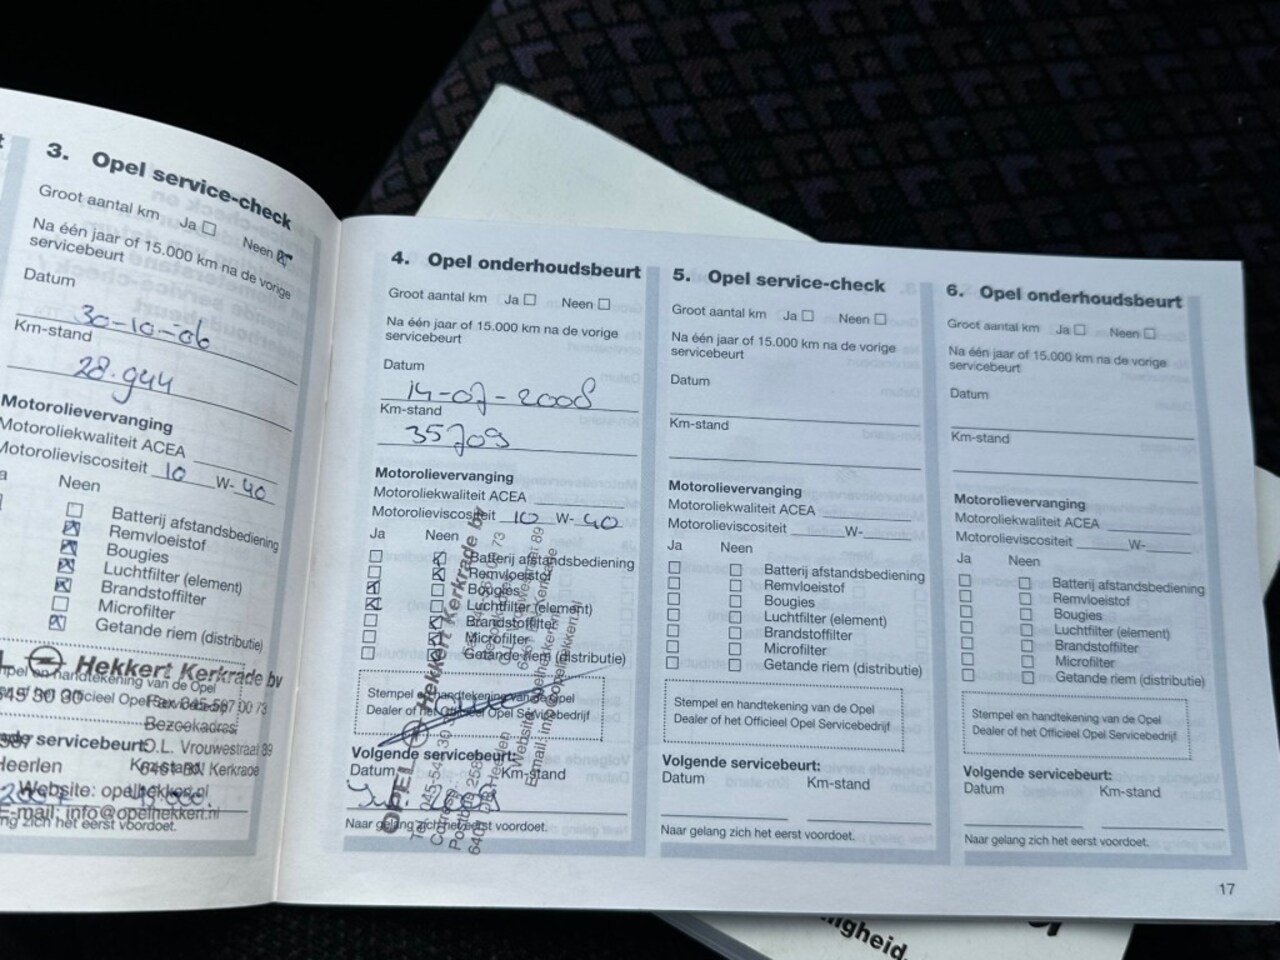 3. Opel service-check
Groot aantal km Ja Neen
Na één jaar of 15.000 km na de vorige
servicebeurt
Datum
30-10-06
Km-stand
28.944
Motorolievervanging
Motoroliekwaliteit ACEA
Motorolieviscositeit 10 W- 40
a Neen
Batterij afstandsbediening
Remvloeistof
Bougies
Luchtfilter (element)
Brandstoffilter
Microfilter
Getande riem (distributie)
Hekkert Kerkrade bv
Stempel en handtekening van de Opel
545 30 30
Bezoekadres
servicebeurt:
O.L. Vrouwestraat 89
Heerlen
Km-stand
Kerkrade
2007
Website: opelhekkert.nl
E-mail: info@opelhekkert.nl
Naar gelang zich het eerst voordoet.
4. Opel onderhoudsbeurt
Groot aantal km Ja Neen
Na één jaar of 15.000 km na de vorige
servicebeurt
Datum
14-07-2008
Km-stand
35709
Motorolievervanging
Motoroliekwaliteit ACEA
Motorolieviscositeit 10 W- 40
Ja Neen
Batterij afstandsbediening
Remvloeistof
Bougies
Luchtfilter (element)
Brandstoffilter
Microfilter
Getande riem (distributie)
Stempel en handtekening van de Opel
Dealer of het Officieel Opel Servicebedrijf
OPEL Hekkert Kerkrade bv
Volgende servicebeurt:
Datum Km-stand
Naar gelang zich het eerst voordoet.
5. Opel service-check
Groot aantal km Ja Neen
Na één jaar of 15.000 km na de vorige
servicebeurt
Datum
Km-stand
Motorolievervanging
Motoroliekwaliteit ACEA
Motorolieviscositeit W-
Ja Neen
Batterij afstandsbediening
Remvloeistof
Bougies
Luchtfilter (element)
Brandstoffilter
Microfilter
Getande riem (distributie)
Stempel en handtekening van de Opel
Dealer of het Officieel Opel Servicebedrijf
Volgende servicebeurt:
Datum Km-stand
Naar gelang zich het eerst voordoet.
6. Opel onderhoudsbeurt
Groot aantal km Ja Neen
Na één jaar of 15.000 km na de vorige
servicebeurt
Datum
Km-stand
Motorolievervanging
Motoroliekwaliteit ACEA
Motorolieviscositeit W-
Ja Neen
Batterij afstandsbediening
Remvloeistof
Bougies
Luchtfilter (element)
Brandstoffilter
Microfilter
Getande riem (distributie)
Stempel en handtekening van de Opel
Dealer of het Officieel Opel Servicebedrijf
Volgende servicebeurt:
Datum Km-stand
Naar gelang zich het eerst voordoet.
17
igheid.